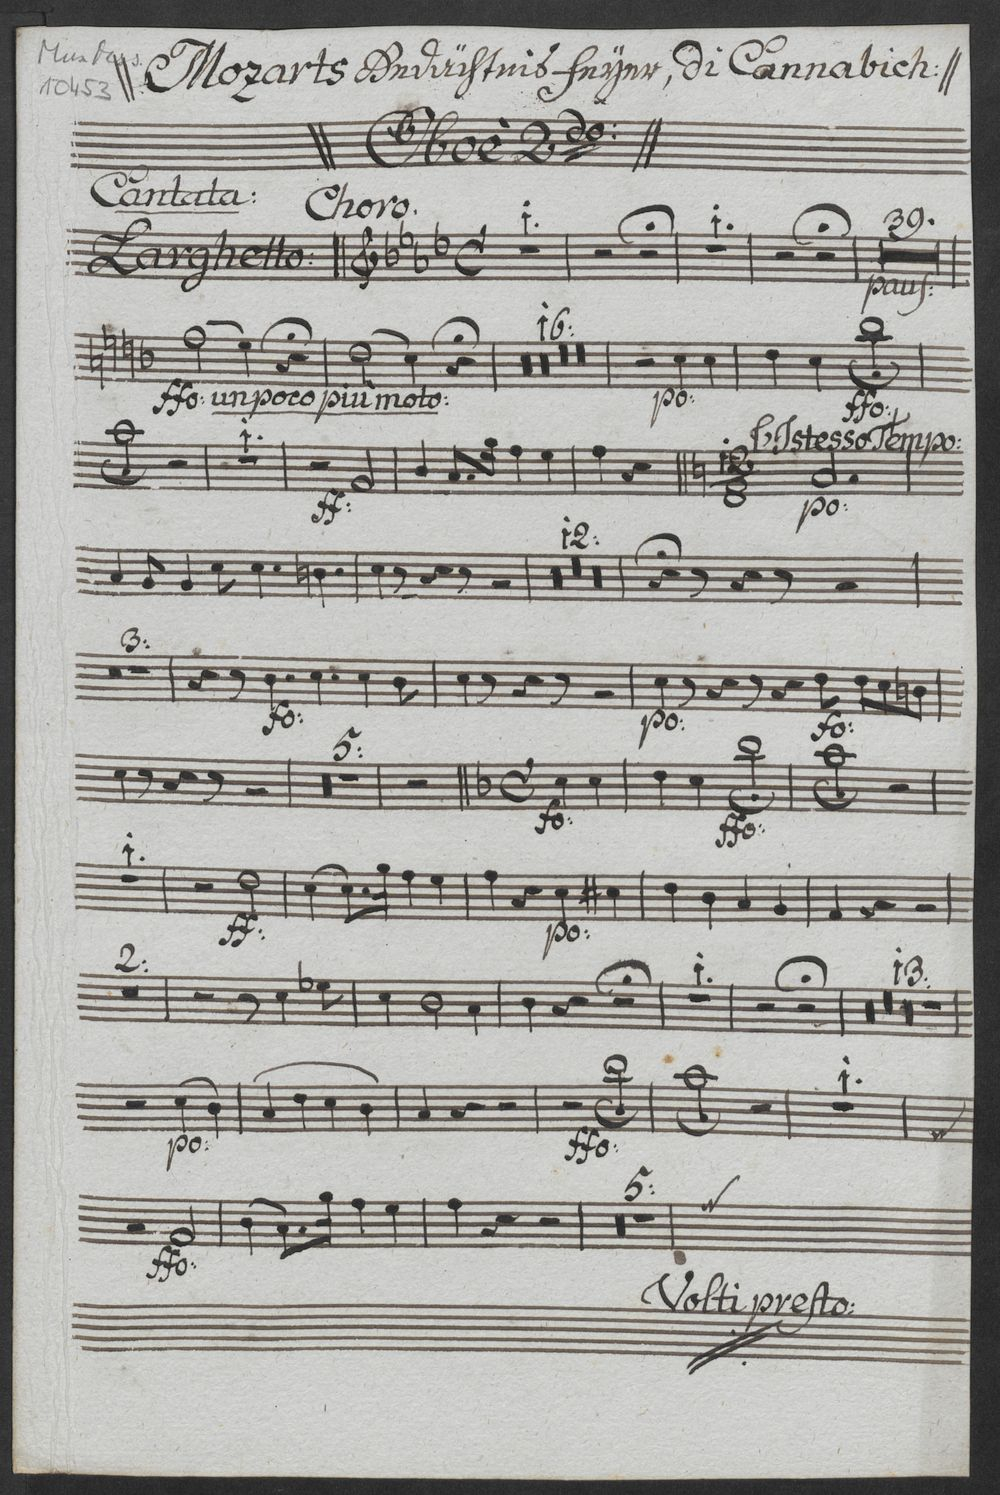 Mus. Pass.
10453
Mozarts Gedächtnis Feÿer, di Cannabich:
Oboè 2do:
Cantata: Choro.
Larghetto: 1. 1. 39.
paus:
16:
ffo: un poco più moto: po: ffo:
1. L'Istesso Tempo:
12
8
ff: po:
12:
3:
fo: po: fo:
5:
fo: ffo:
1.
ff: po:
2: 1. 13.
1.
po: ffo:
5:
ffo:
Volti presto: